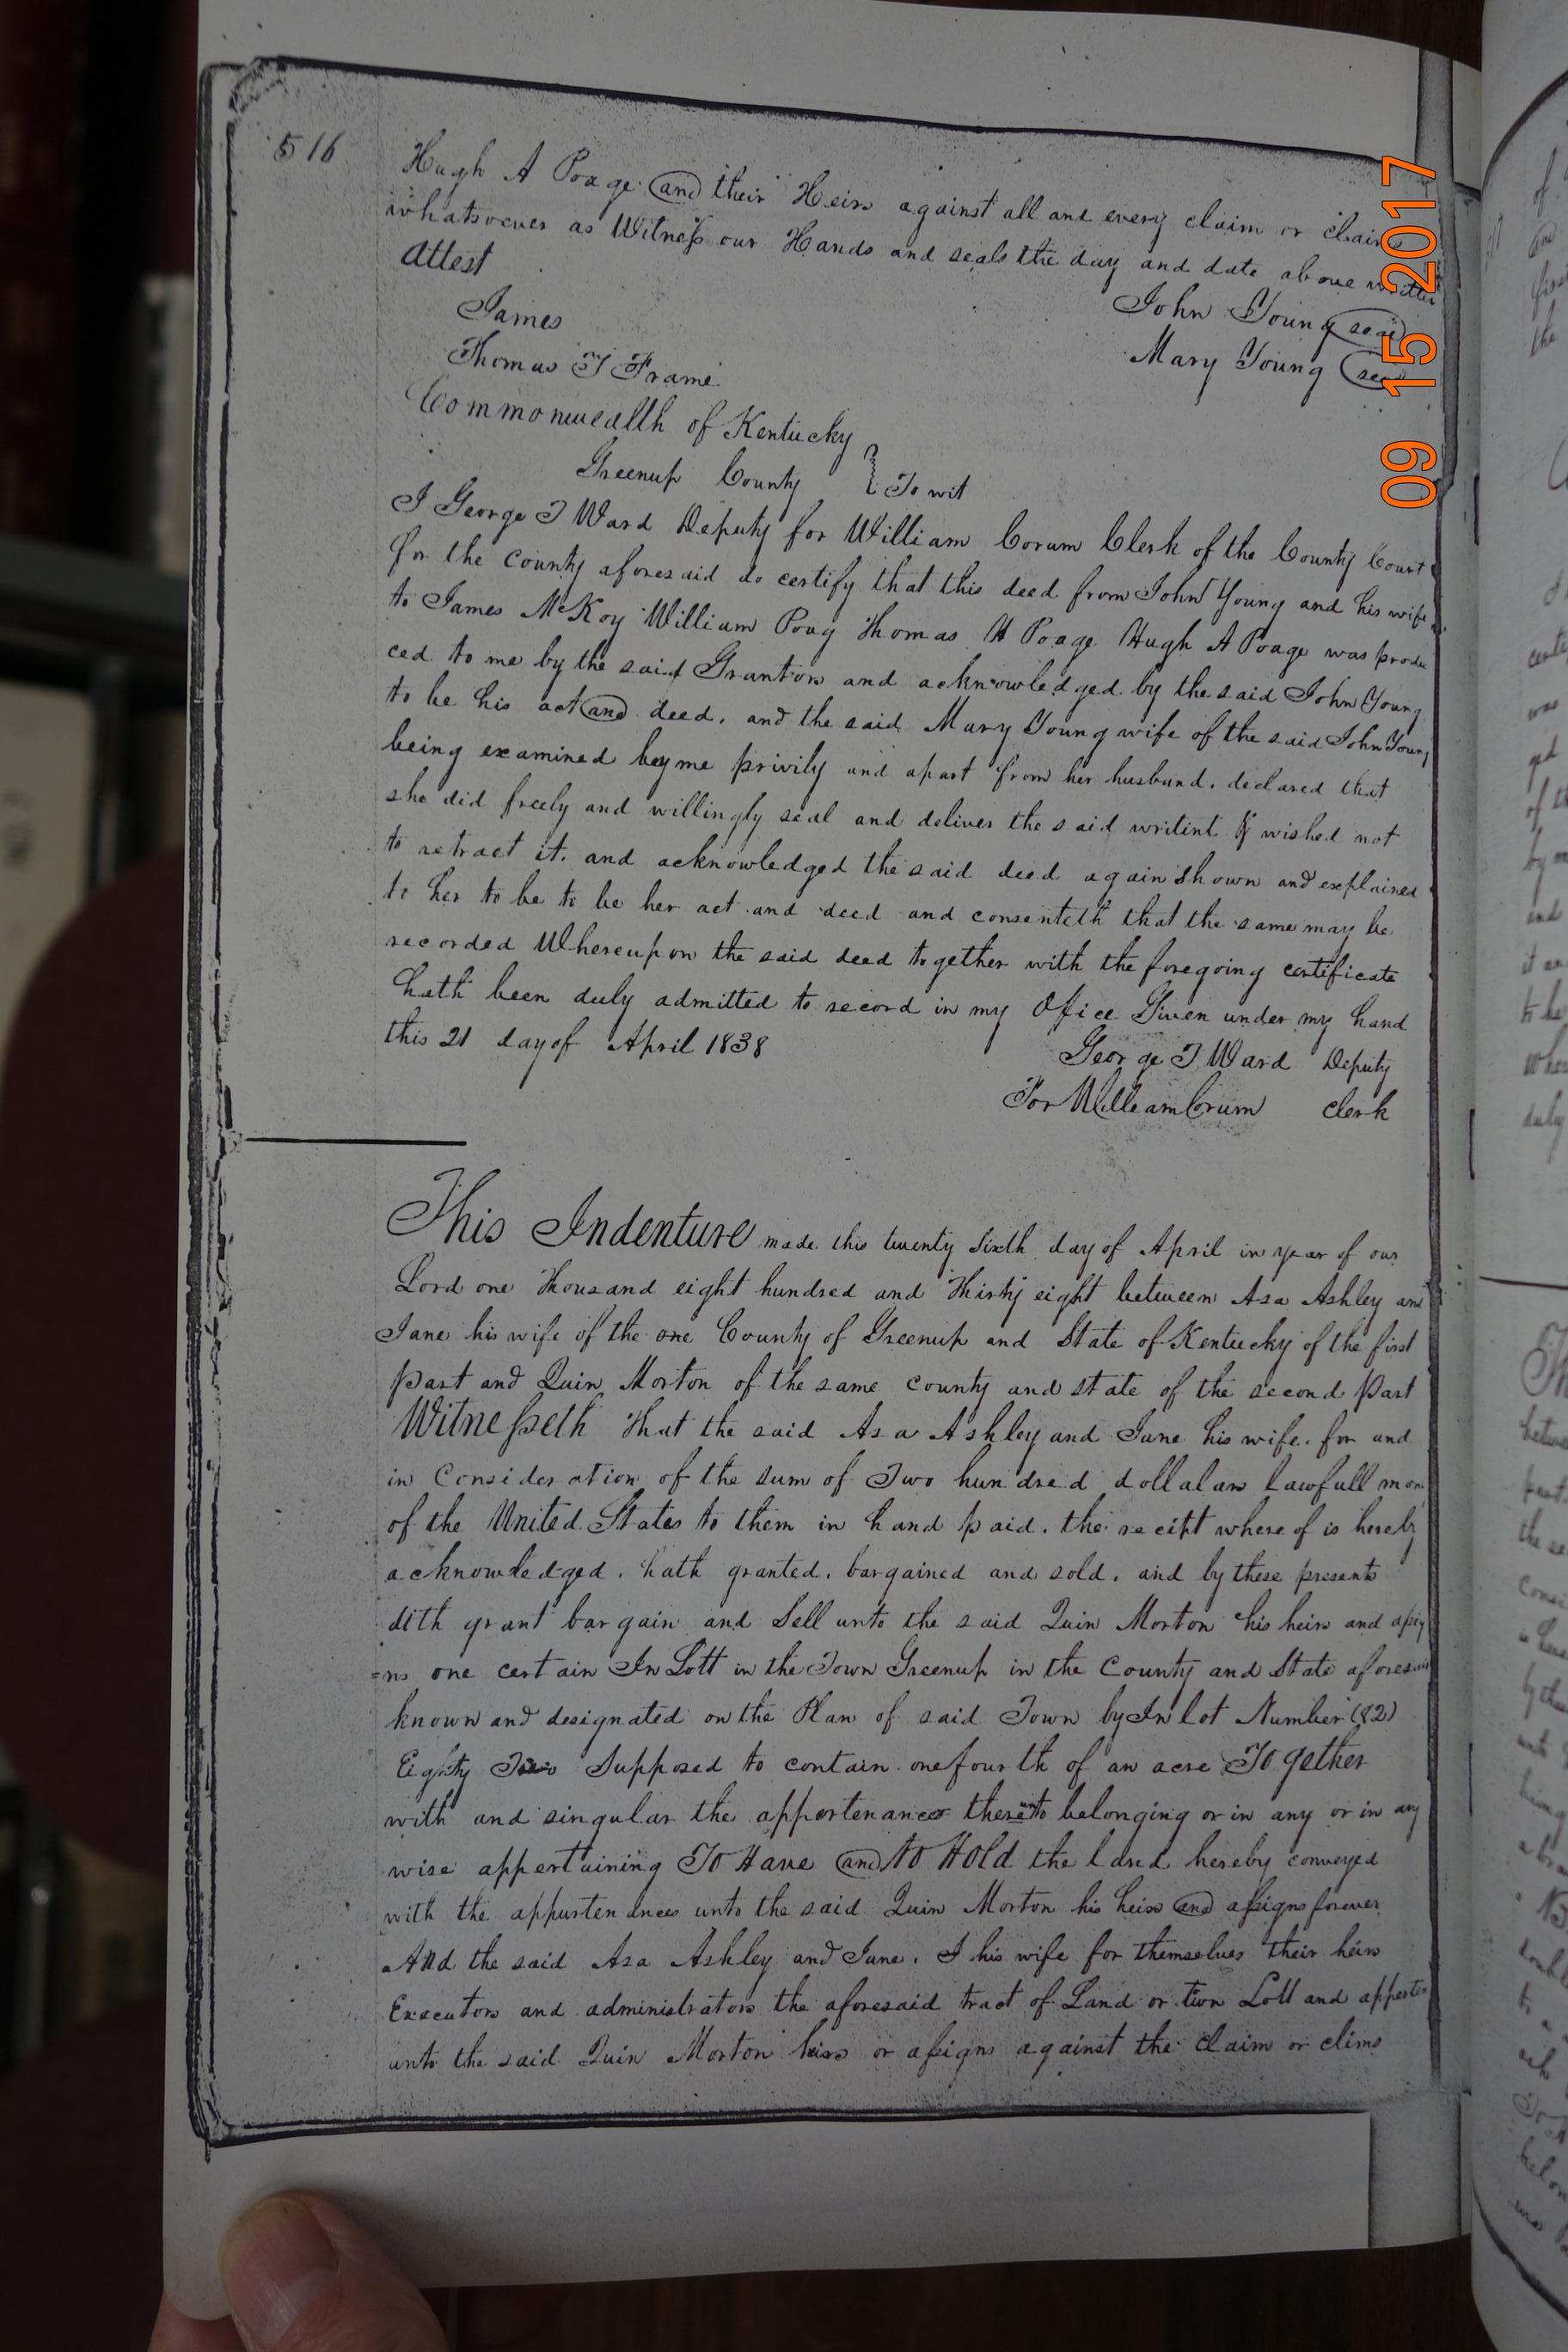 516
Hugh A Poage and their Heirs against all and every claim or claims
whatsoever as Witness our Hands and seals the day and date above written
Attest
John Young seal
James
Mary Young seal
Thomas T Frame
Commonwealth of Kentucky
Greenup County } To wit
I George T Ward Deputy for William Corum Clerk of the County Court
for the county aforesaid do certify that this deed from John Young and his wife
to James McKoy William Poag Thomas H Poage Hugh A Poage was produ
ced to me by the said Grantors and acknowledged by the said John Young
to be his act and deed. and the said Mary Young wife of the said John Young
being examined by me privily and apart from her husband. declared that
she did freely and willingly seal and deliver the said writint & wished not
to retract it. and acknowledged the said deed again shown and explained
to her to be to be her act and deed and consenteth that the same may be
recorded Whereupon the said deed together with the foregoing certificate
hath been duly admitted to record in my Ofice Given under my hand
this 21 day of April 1838
George T Ward Deputy
For William Crum Clerk
This Indenture made this twenty sixth day of April in year of our
Lord one thousand eight hundred and thirty eight between Asa Ashley and
Jane his wife of the one County of Greenup and State of Kentucky of the first
part and Quin Morton of the same county and state of the second part
Witnesseth that the said Asa Ashley and Jane his wife. for and
in Consideration of the sum of Two hundred dollalars lawfull mon
of the United States to them in hand paid. the receipt whereof is hereby
acknowledged. hath granted. bargained and sold. and by these presents
dith grant bargain and Sell unto the said Quin Morton his heirs and assig
=ns one certain In Lott in the Town Greenup in the County and State aforesaid
known and designated on the Plan of said Town by In lot Number (82)
Eighty Two Supposed to contain one fourth of an acre Together
with and singular the appertenances thereunto belonging or in any or in any
wise appertaining To Have and to Hold the land hereby conveyed
with the appurtenances unto the said Quin Morton his heirs and assigns forever
And the said Asa Ashley and Jane. I his wife for themselves their heirs
Executors and administrators the aforesaid tract of Land or Lott and apperte
unto the said Quin Morton heirs or assigns against the claim or clims
09 15 2017